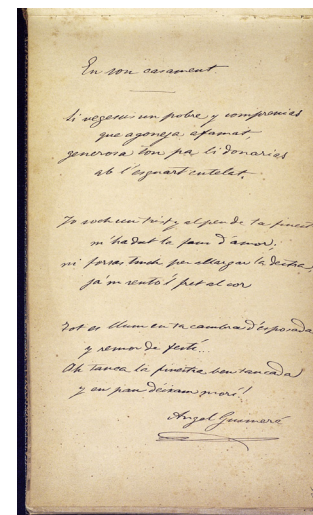 En son casament.
Si vegessis un pobre y comprenias
que agoneja afamat,
generosa ton pa li donarias
ab l'esguart entelat.
Jo soch un trist y al peu de ta finest
m'ha dut la fam d'amor;
ni forsas tinch per allargar la destra,
ja m sento l fret al cor
Tot es llum en ta cambra d'esposada
y remor de festí...
Ah tanca la finestra ben tancada
y en pau deixam morí!
Angel Guimerá